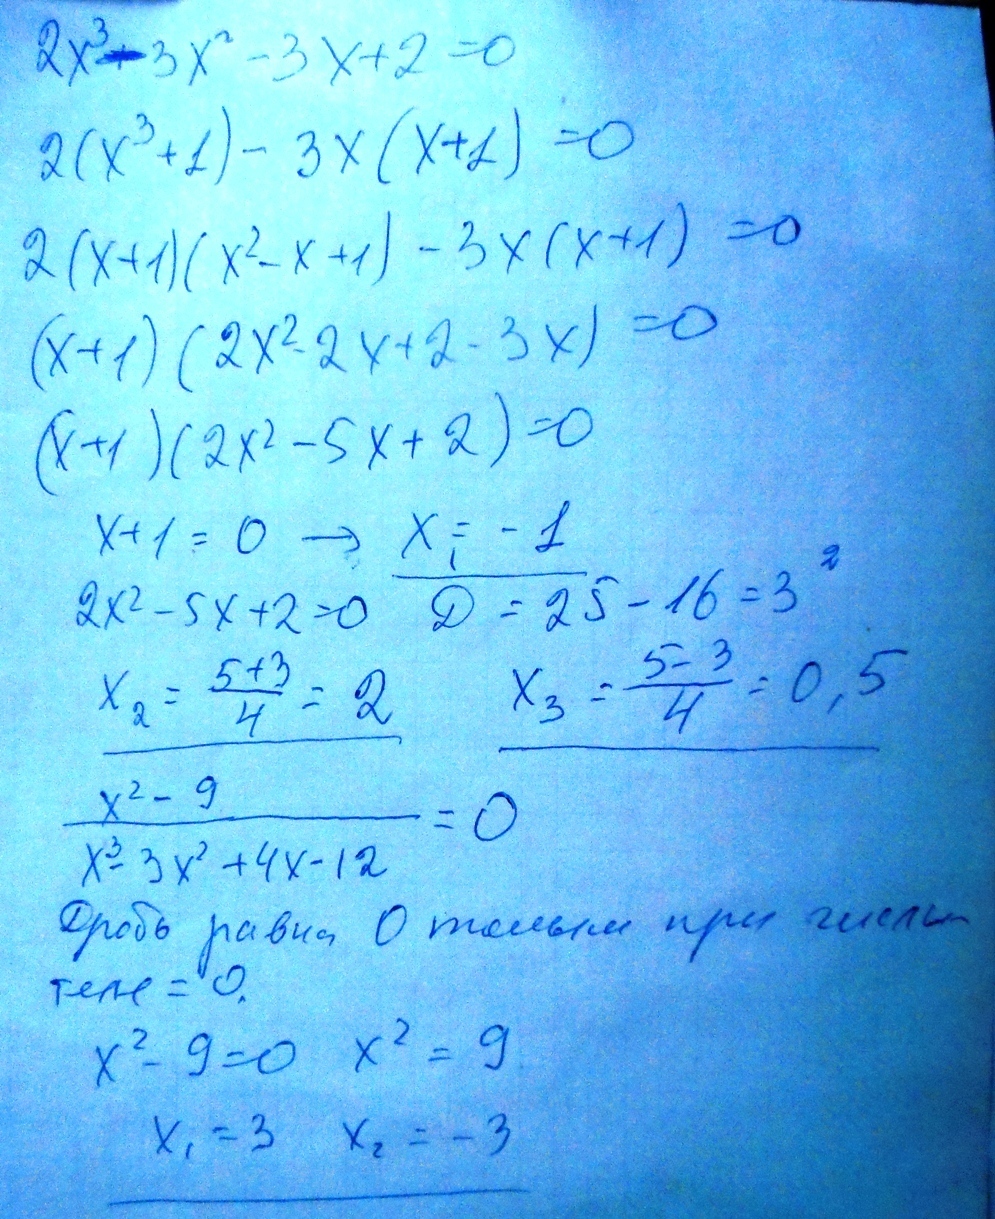 2x³-3x²-3x+2=0
2(x³+1)-3x(x+1)=0
2(x+1)(x²-x+1)-3x(x+1)=0
(x+1)(2x²-2x+2-3x)=0
(x+1)(2x²-5x+2)=0
x+1=0 → x₁=-1
2x²-5x+2=0 D=25-16=3²
x₂=(5+3)/4=2 x₃=(5-3)/4=0,5
(x²-9)/(x³-3x²+4x-12)=0
Дробь равна 0 только при числи
теле=0.
x²-9=0 x²=9
x₁=3 x₂=-3